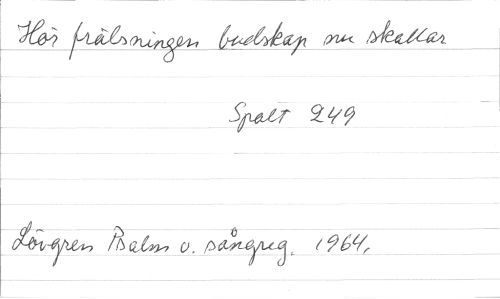 Hör frälsningen budskap nu skallar
Spalt 249
Lövgren Psalm o. sångreg. 1964.